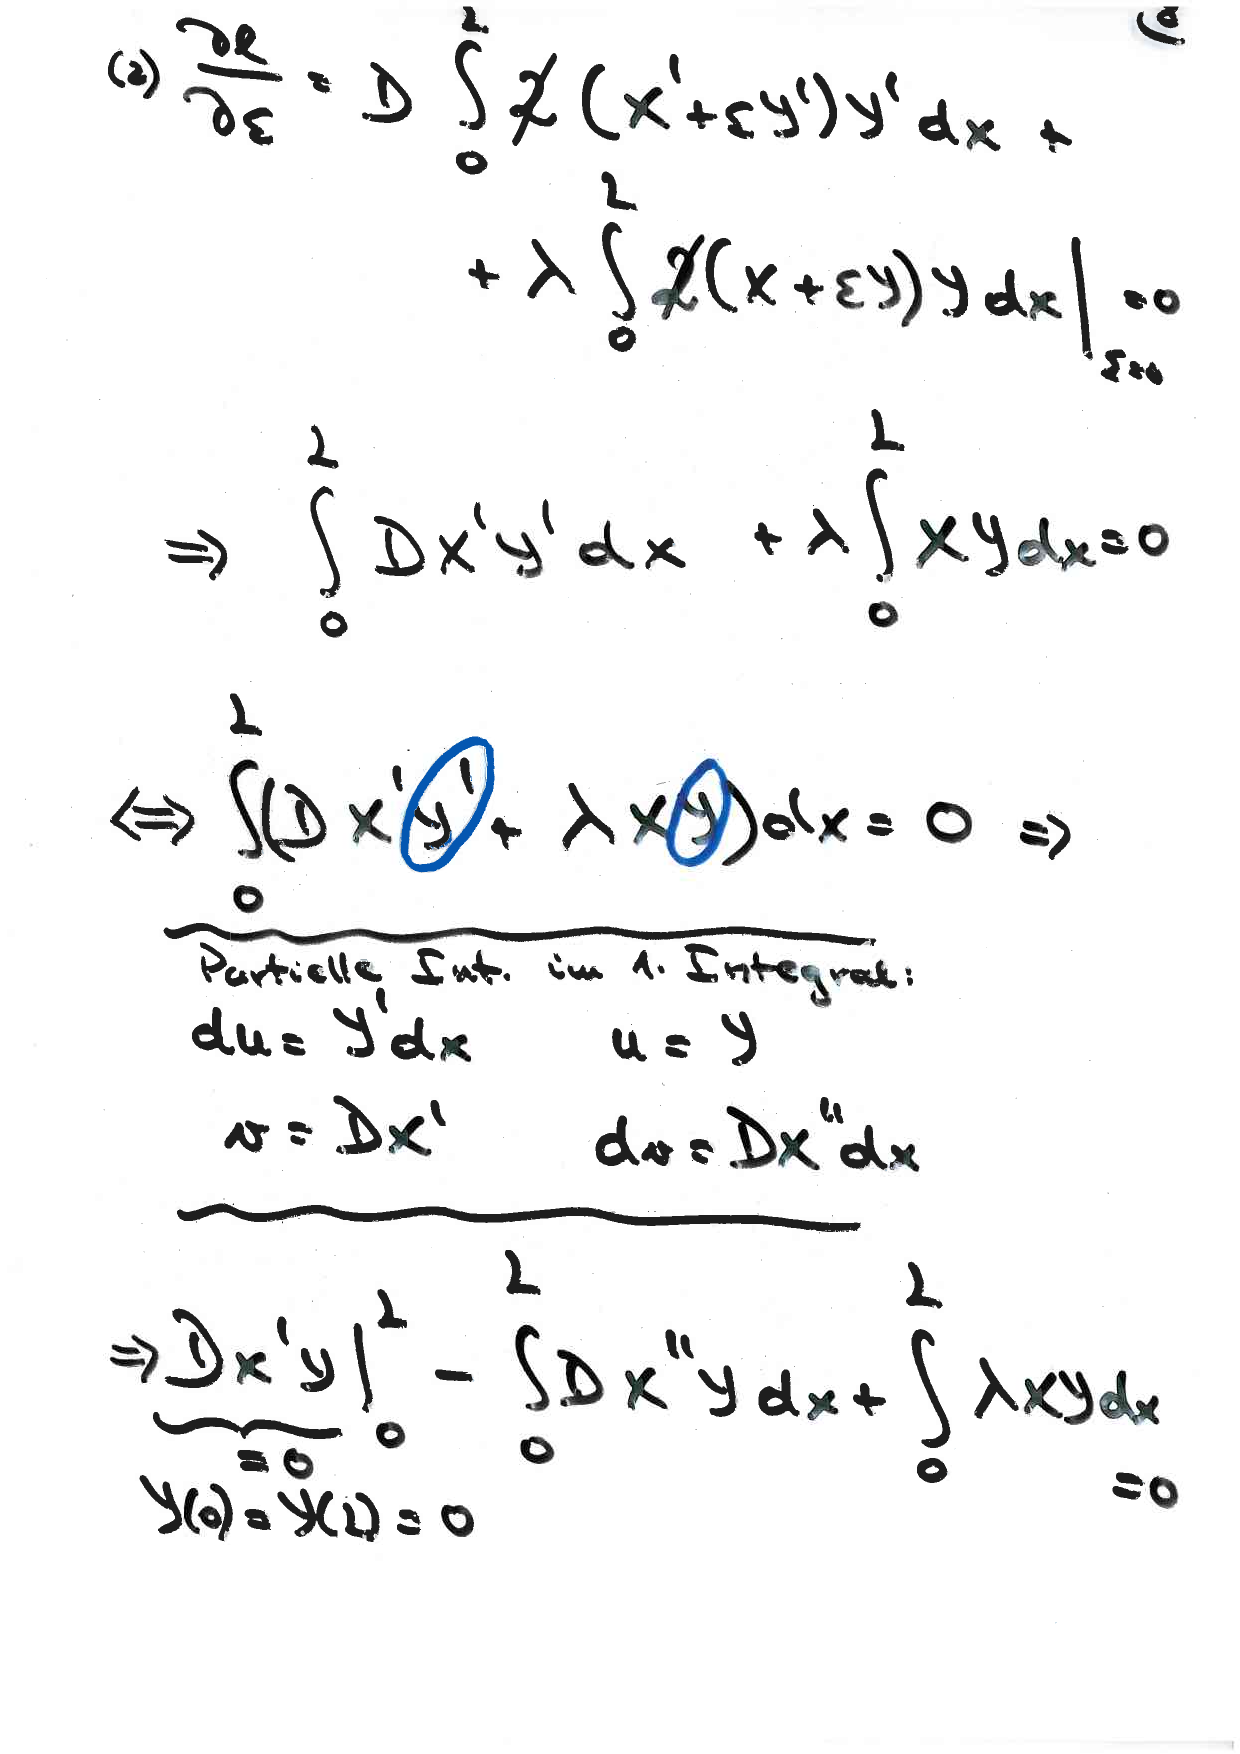 (2) ∂ℓ/∂ε = D ∫₀ᴸ 2 (X' + εy') y' dx +
+ λ ∫₀ᴸ 2 (X + εy) y dx |_{ε=0} = 0
⇒ ∫₀ᴸ D X' y' dx + λ ∫₀ᴸ X y dx = 0
⇔ ∫₀ᴸ (D X' y' + λ X y) dx = 0 ⇒
Partielle Int. im 1. Integral:
du = y' dx u = y
v = D X' dv = D X'' dx
⇒ D X' y |₀ᴸ - ∫₀ᴸ D X'' y dx + ∫₀ᴸ λ X y dx
= 0 = 0
y(0) = y(L) = 0